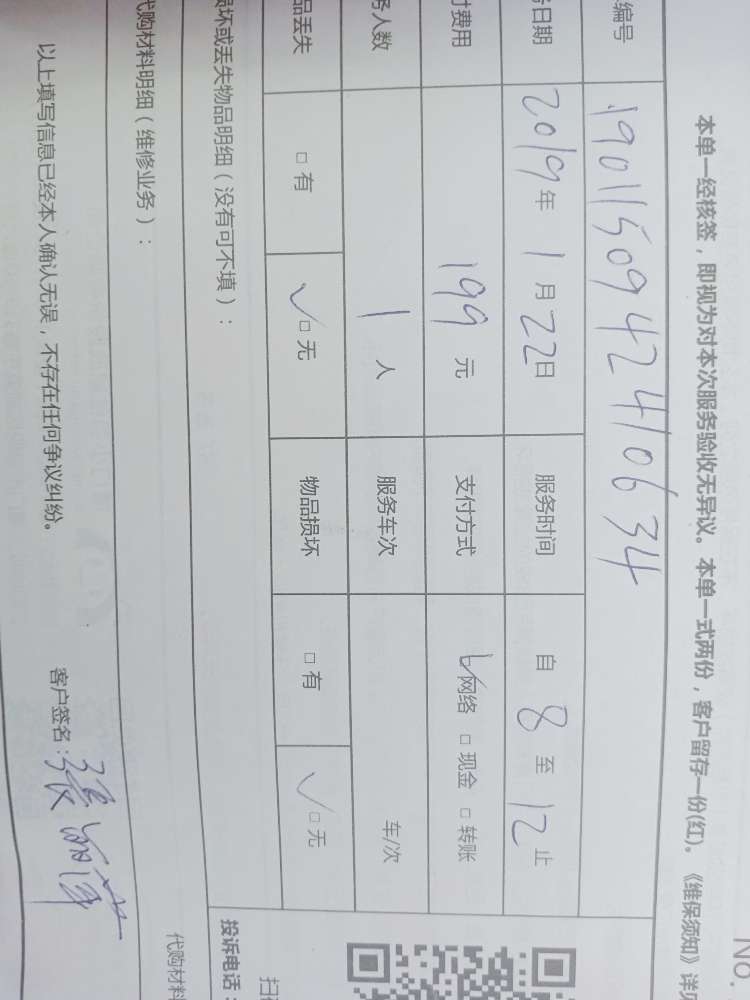 No.
本单一经核签，即视为对本次服务验收无异议。本单一式两份，客户留存一份(红)。《维保须知》详见
编号 1901150942410634
日期 2019年1月22日 服务时间 自8至12止
费用 199元 支付方式 ☑网络 □现金 □转账
务人数 1人 服务车次 车/次
品丢失 □有 ☑无 物品损坏 □有 ☑无
损坏或丢失物品明细（没有可不填）：
投诉电话：
代购材料明细（维修业务）：
代购材料
以上填写信息已经本人确认无误，不存在任何争议纠纷。 客户签名：張